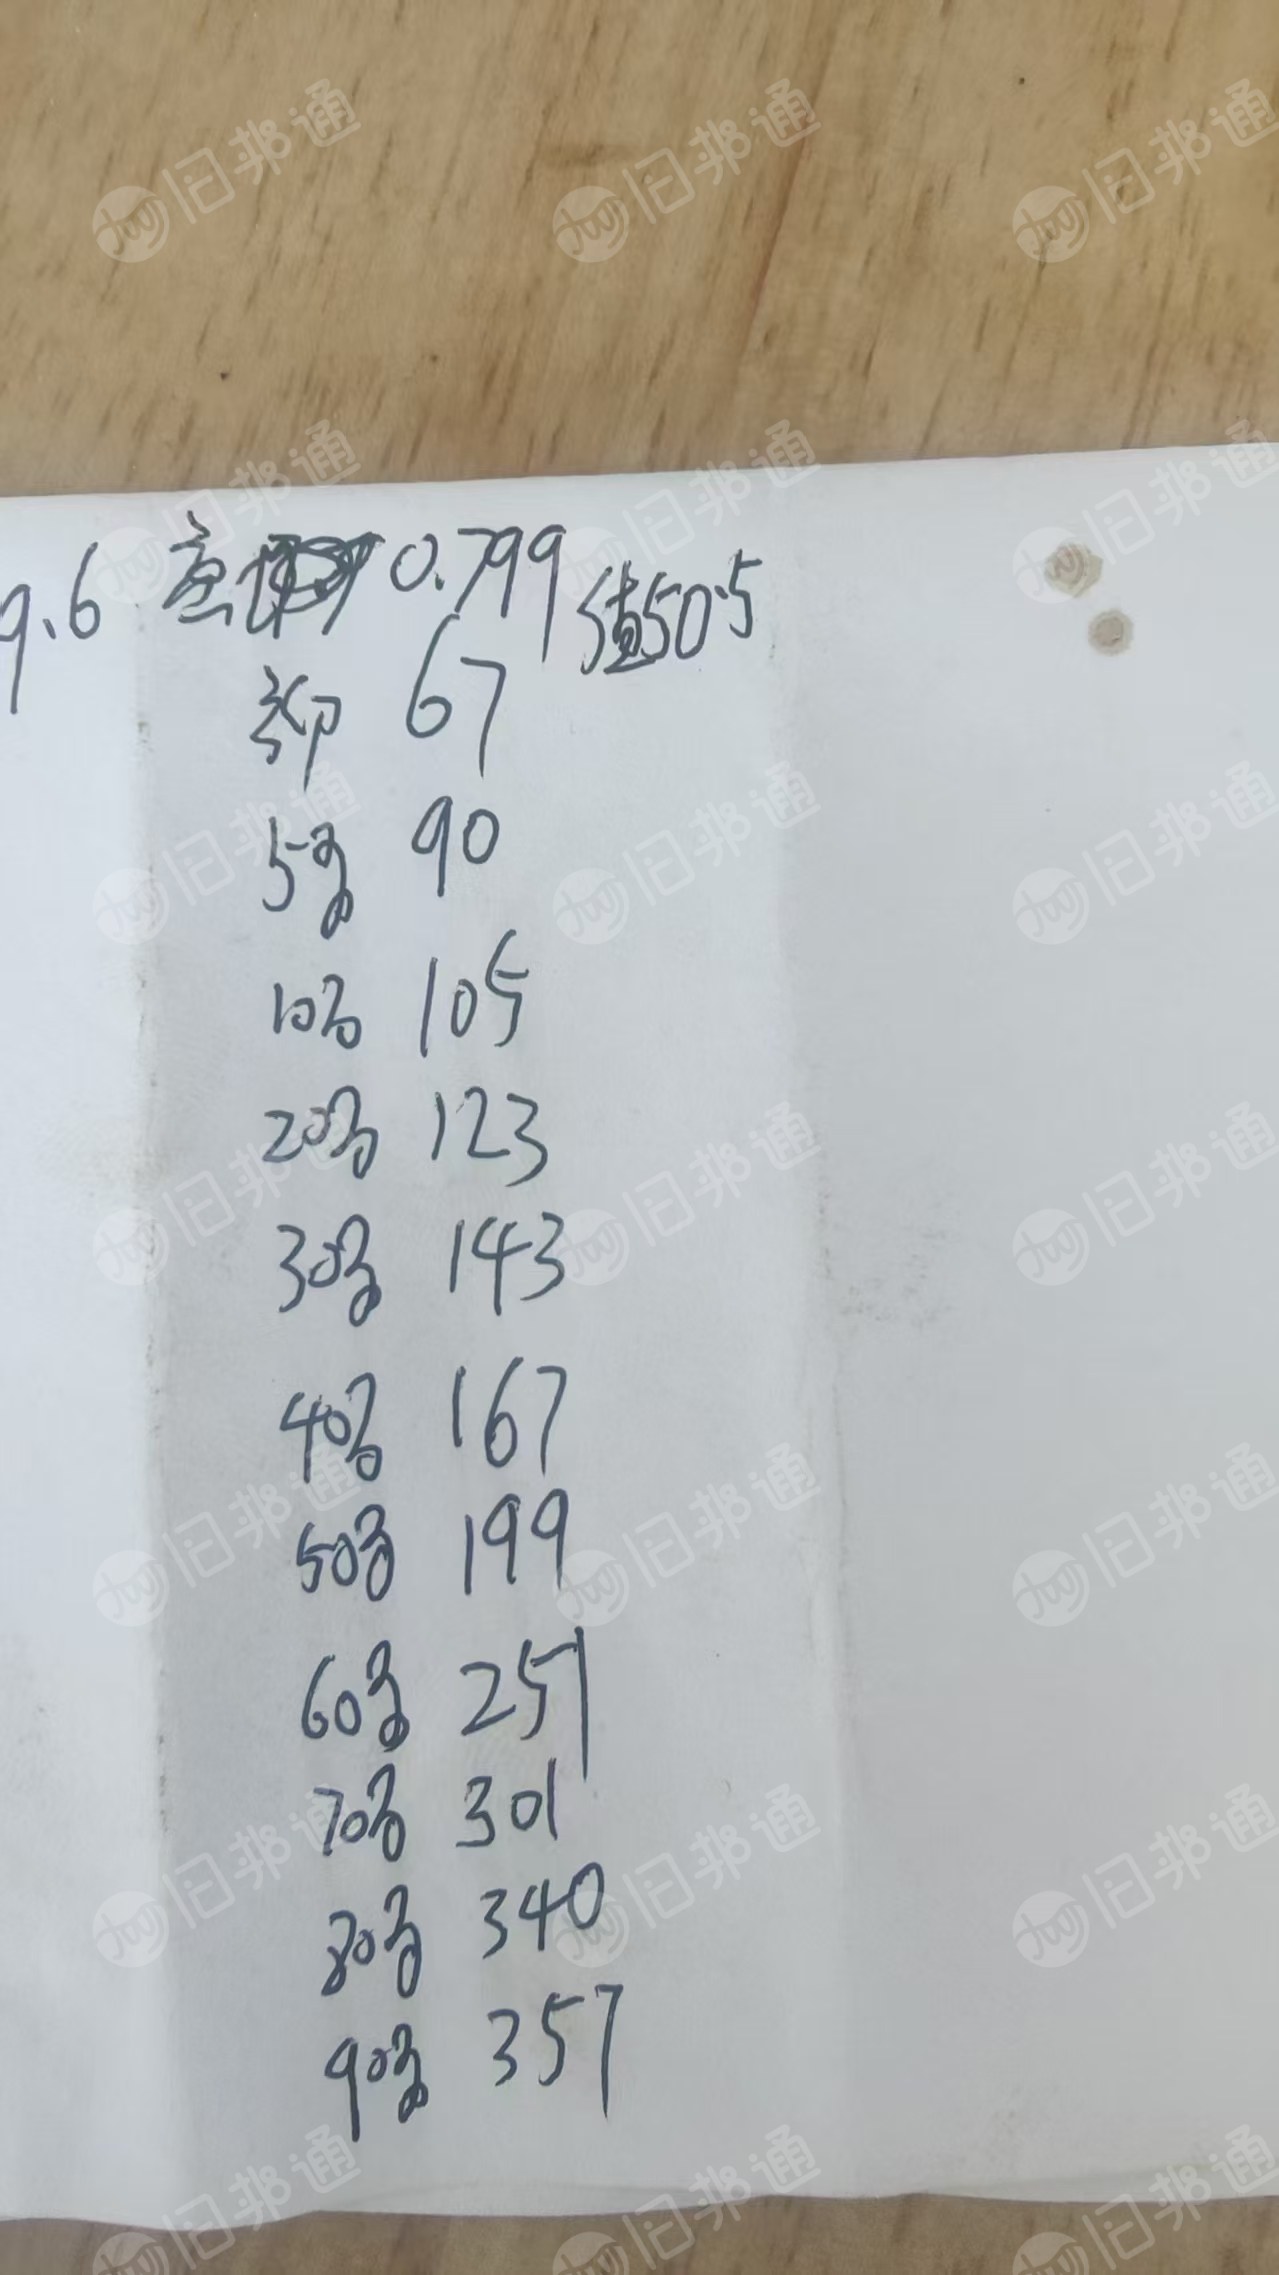 9.6 意 0.799 值50.5
初 67
5% 90
10% 105
20% 123
30% 143
40% 167
50% 199
60% 251
70% 301
80% 340
90% 357
旧邦通